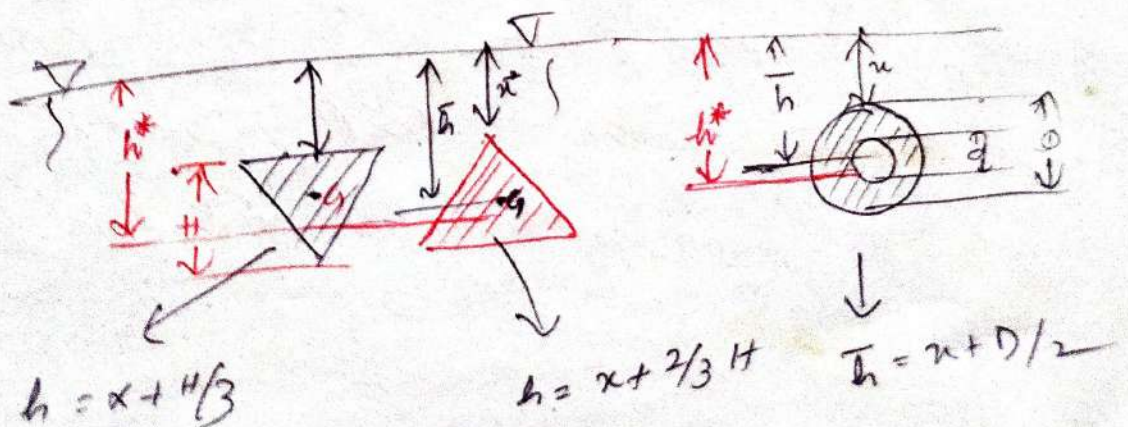 h* H G h̄ x G h* h̄ x d D
h = x + H/3
h = x + 2/3 H
h̄ = x + D/2